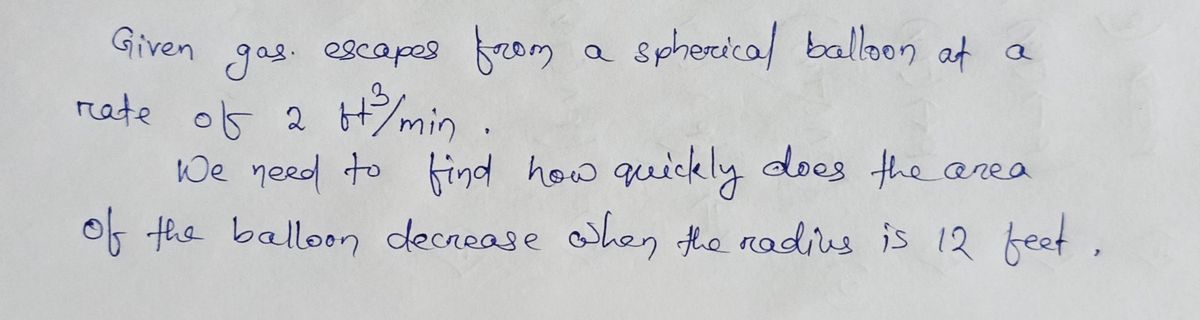 Given gas. escapes from a spherical balloon at a
rate of 2 ft³/min .
We need to find how quickly does the area
of the balloon decrease when the radius is 12 feet .